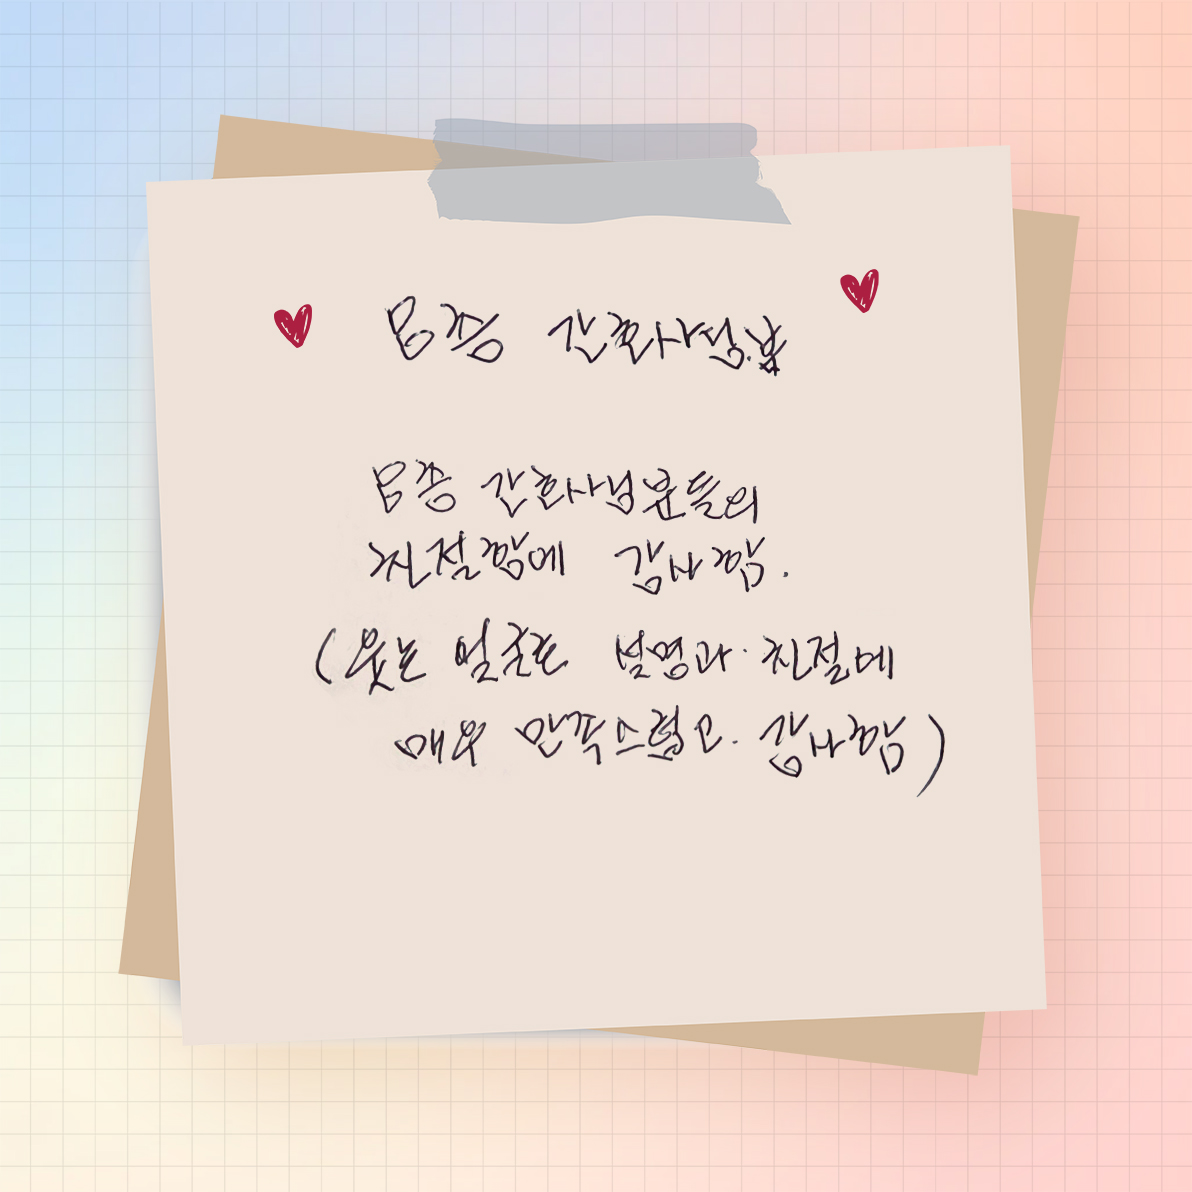 8층 간호사님분
8층 간호사님분들의
친절함에 감사함.
(웃는 얼굴로 설명과 친절에
매우 만족스럽고. 감사함)